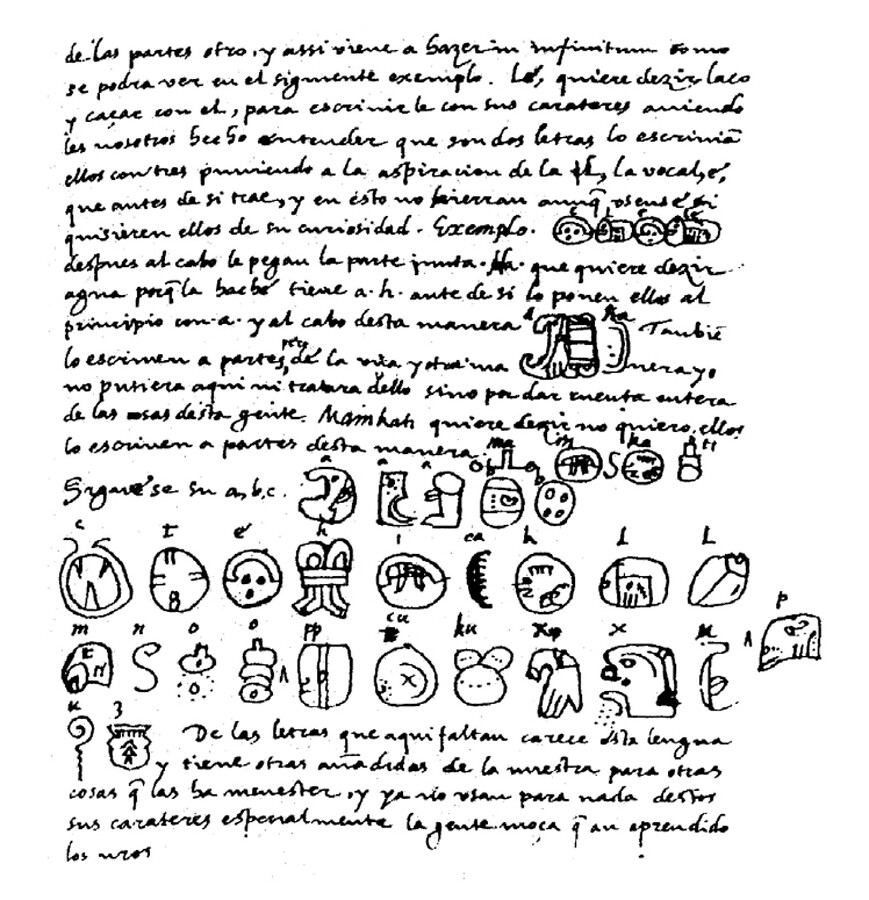 de las partes otro, y assi viene a hazer in infinitum como
se podra ver en el siguiente exemplo. Lé, quiere dezir laço
y caçar con el, para escrivirle con sus carateres aviendo
les nosotros hecho entender que son dos letras lo escrivian
ellos con tres puniendo a la aspiracion de la ł, la vocal, é,
que antes de si trae, y en esto no hierran aunq̃ usense si
quisieren ellos de su curiosidad. Exemplo. e l e le
despues al cabo le pegan la parte junta. Ha. que quiere dezir
agua porq̃ la haché tiene a. h. ante de si lo ponen ellos al
principio con a. y al cabo desta manera a ha Tanbiē
lo escriven a partes, pero de la una y otra ma nera yo
no pusiera aqui ni tratara dello sino por dar cuenta entera
de las cosas desta gente. Mainkati quiere dezir no quiero ellos
lo escriven a partes desta manera. ma i n ka ti
Siguese su a, b, c. a a a b b
c t é h i ca k l l
m n o o pp cu ku x x u p
u z De las letras que aqui faltan carece esta lengua
y tiene otras añadidas de la nuestra para otras
cosas q̃ las ha menester, y ya no usan para nada destos
sus carateres especialmente la gente moça q̃ an aprendido
los nros